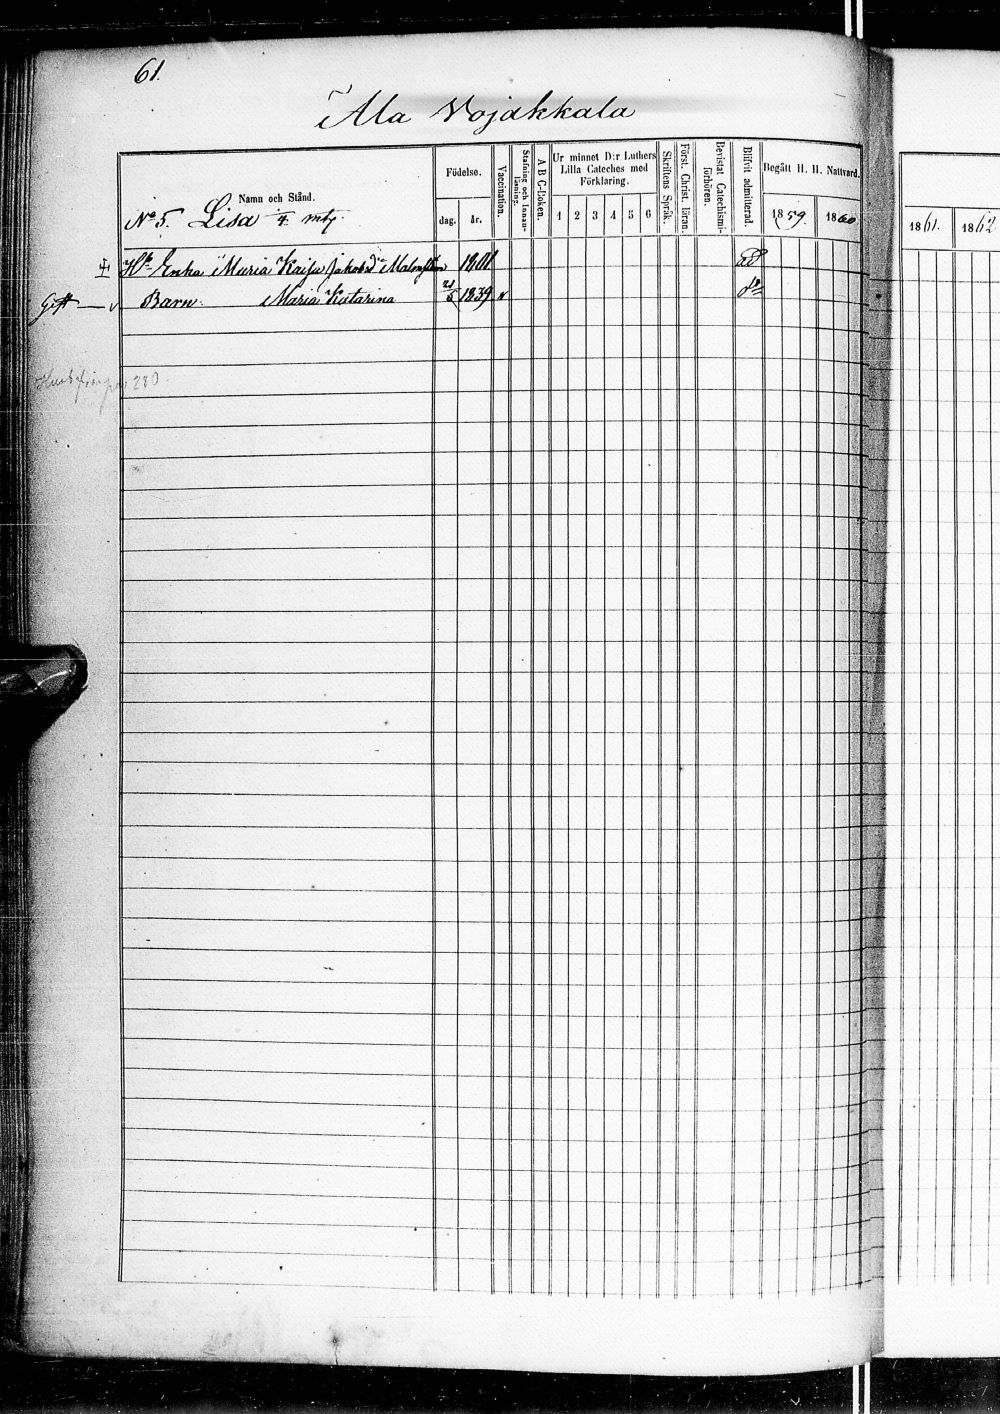 61.
Ala Vojakkala
Namn och Stånd.
Födelse.
dag.
år.
Vaccination.
Stafning och Innan-läsning.
A B C-Boken.
Ur minnet D:r Luthers
Lilla Cateches med
Förklaring.
1 2 3 4 5 6
Skriftens Språk.
Först. Christ. läran.
Bevistat Catechismi-förhören.
Blifvit admitterad.
Begått H. H. Nattvard.
1859. 1860
1861. 1862
No 5. Lisa 1/4 mtl.
Enka Maria Kaisa Jakobsdr 1801
Gift — v Barn. Maria Katarina 21/5 1839 v
280